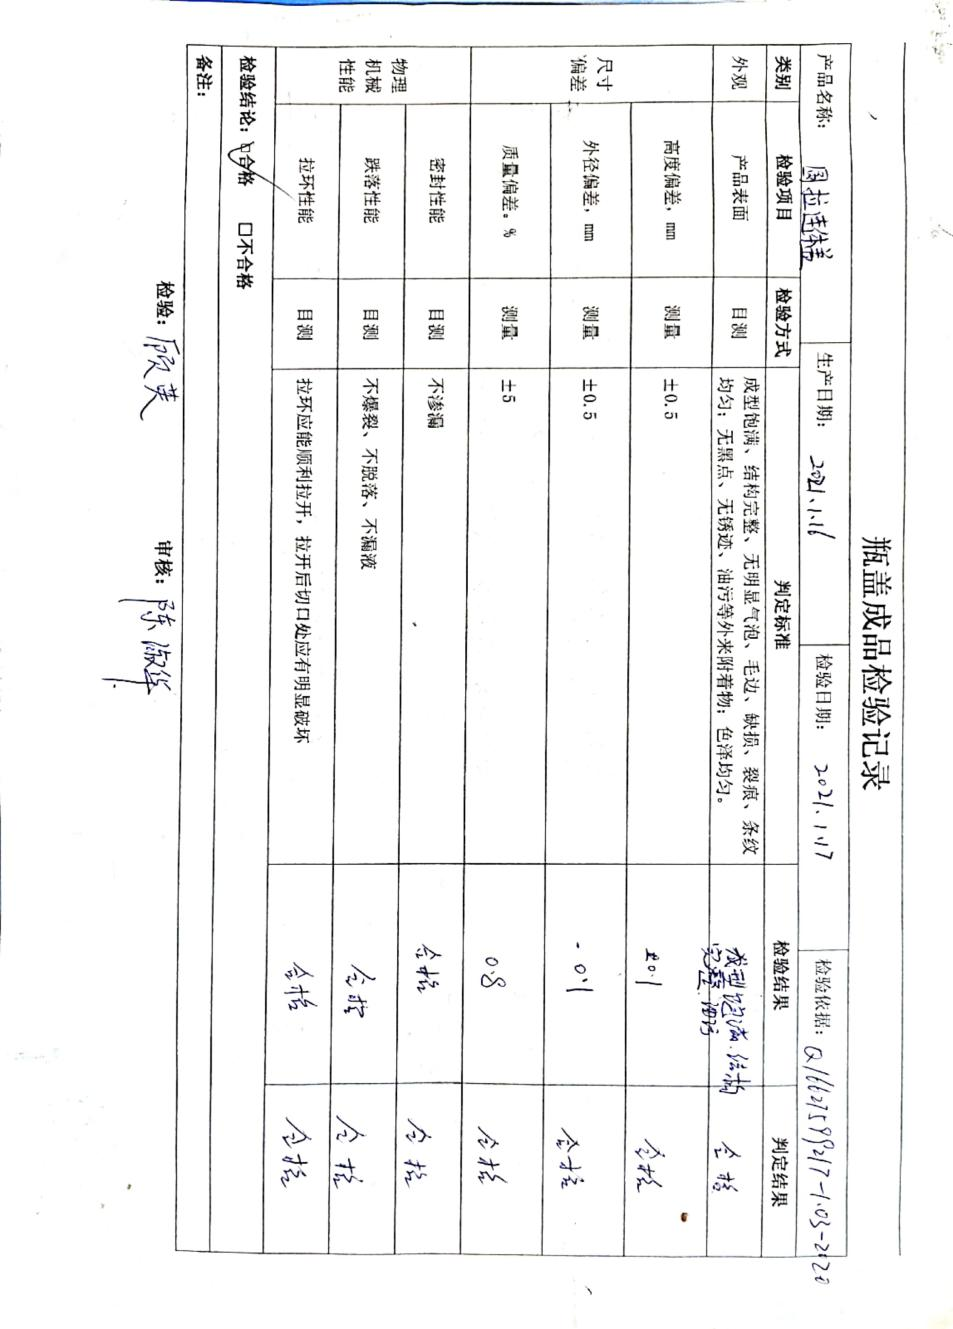 瓶盖成品检验记录
产品名称： 易拉连体盖 生产日期： 2021.1.16 检验日期： 2021.1.17 检验依据： Q/662759217-1.03-2020
类别 检验项目 检验方式 判定标准 检验结果 判定结果
外观 产品表面 目测 成型饱满、结构完整、无明显气泡、毛边、缺损、裂痕、条纹 成型饱满.结构 合格
均匀；无黑点、无锈迹、油污等外来附着物；色泽均匀。 完整
尺寸
偏差
高度偏差，mm 测量 ±0.5 ±0.1 合格
外径偏差，mm 测量 ±0.5 -0.1 合格
质量偏差。% 测量 ±5 0.8 合格
物理
机械
性能
密封性能 目测 不渗漏 合格 合格
跌落性能 目测 不爆裂、不脱落、不漏液 合格 合格
拉环性能 目测 拉环应能顺利拉开，拉开后切口处应有明显破坏 合格 合格
检验结论：☑合格 □不合格
备注：
检验：顾英 审核：陈淑华